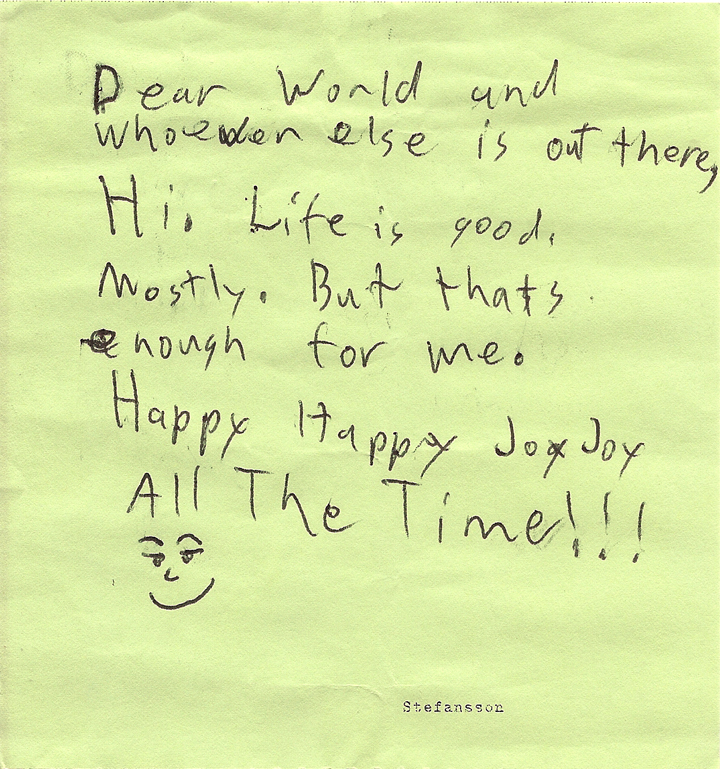 Dear World and
whoever else is out there,
Hi. Life is good.
Mostly. But thats
enough for me.
Happy Happy Joy Joy
All The Time!!!
Stefansson